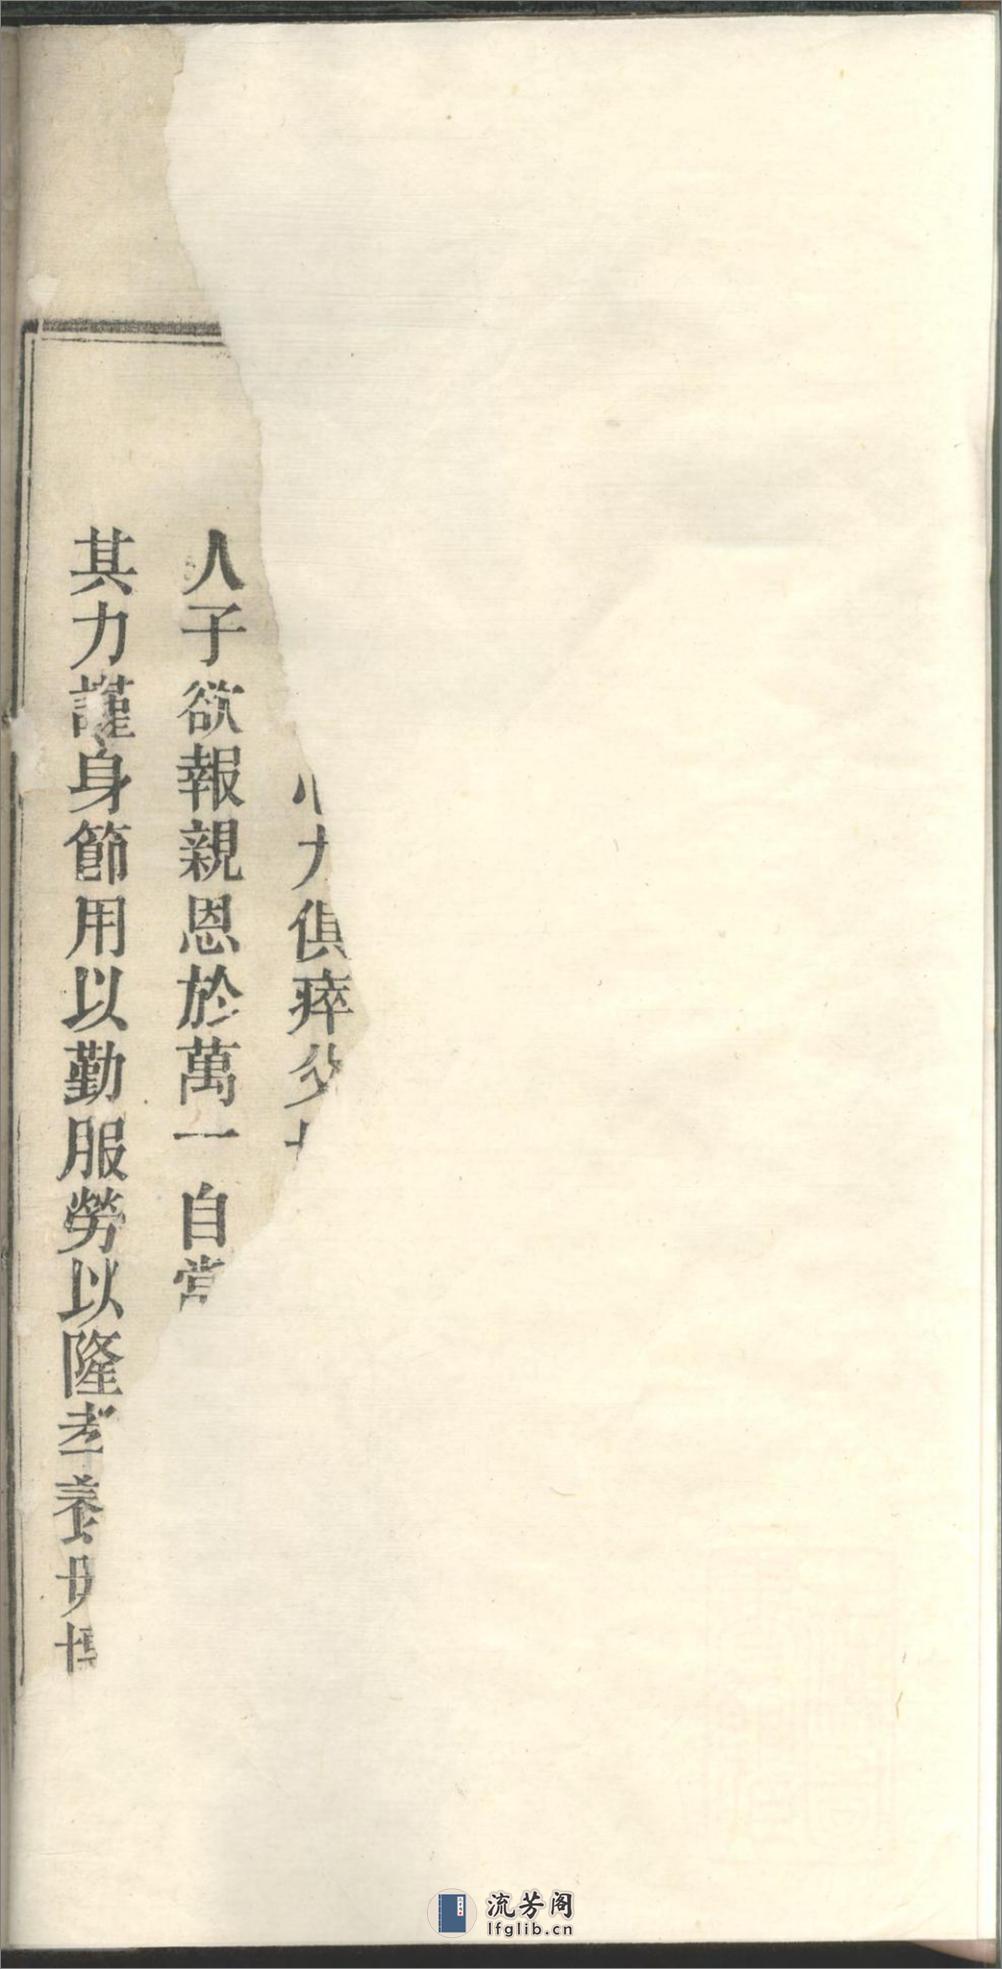 心力俱瘁父母
人子欲報親恩於萬一自當
其力謹身節用以勤服勞以隆孝養毋博
流芳阁
lfglib.cn